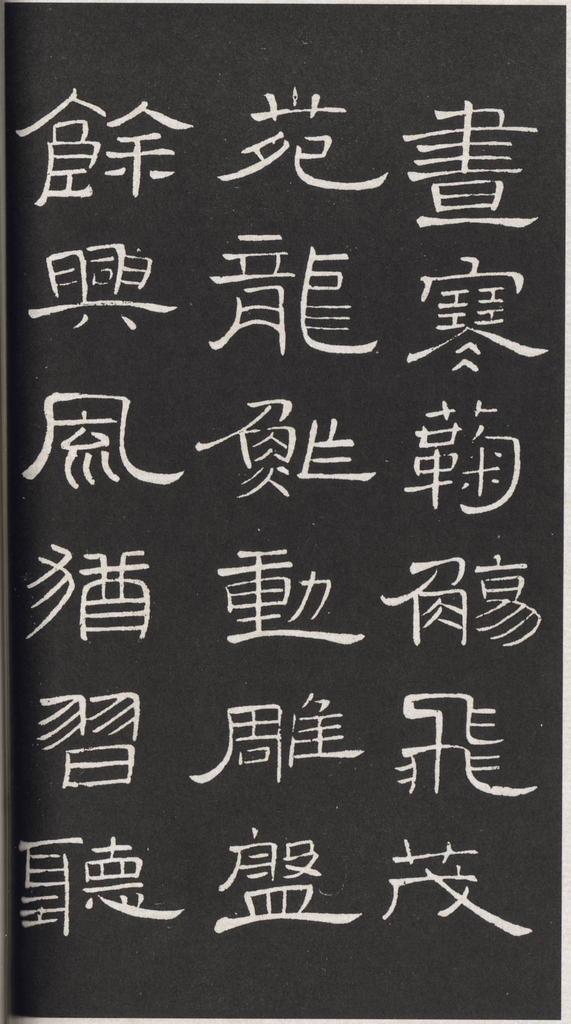 晝寒鞠觴飛茂
苑龍鮓動雕盤
餘興風猶習聽